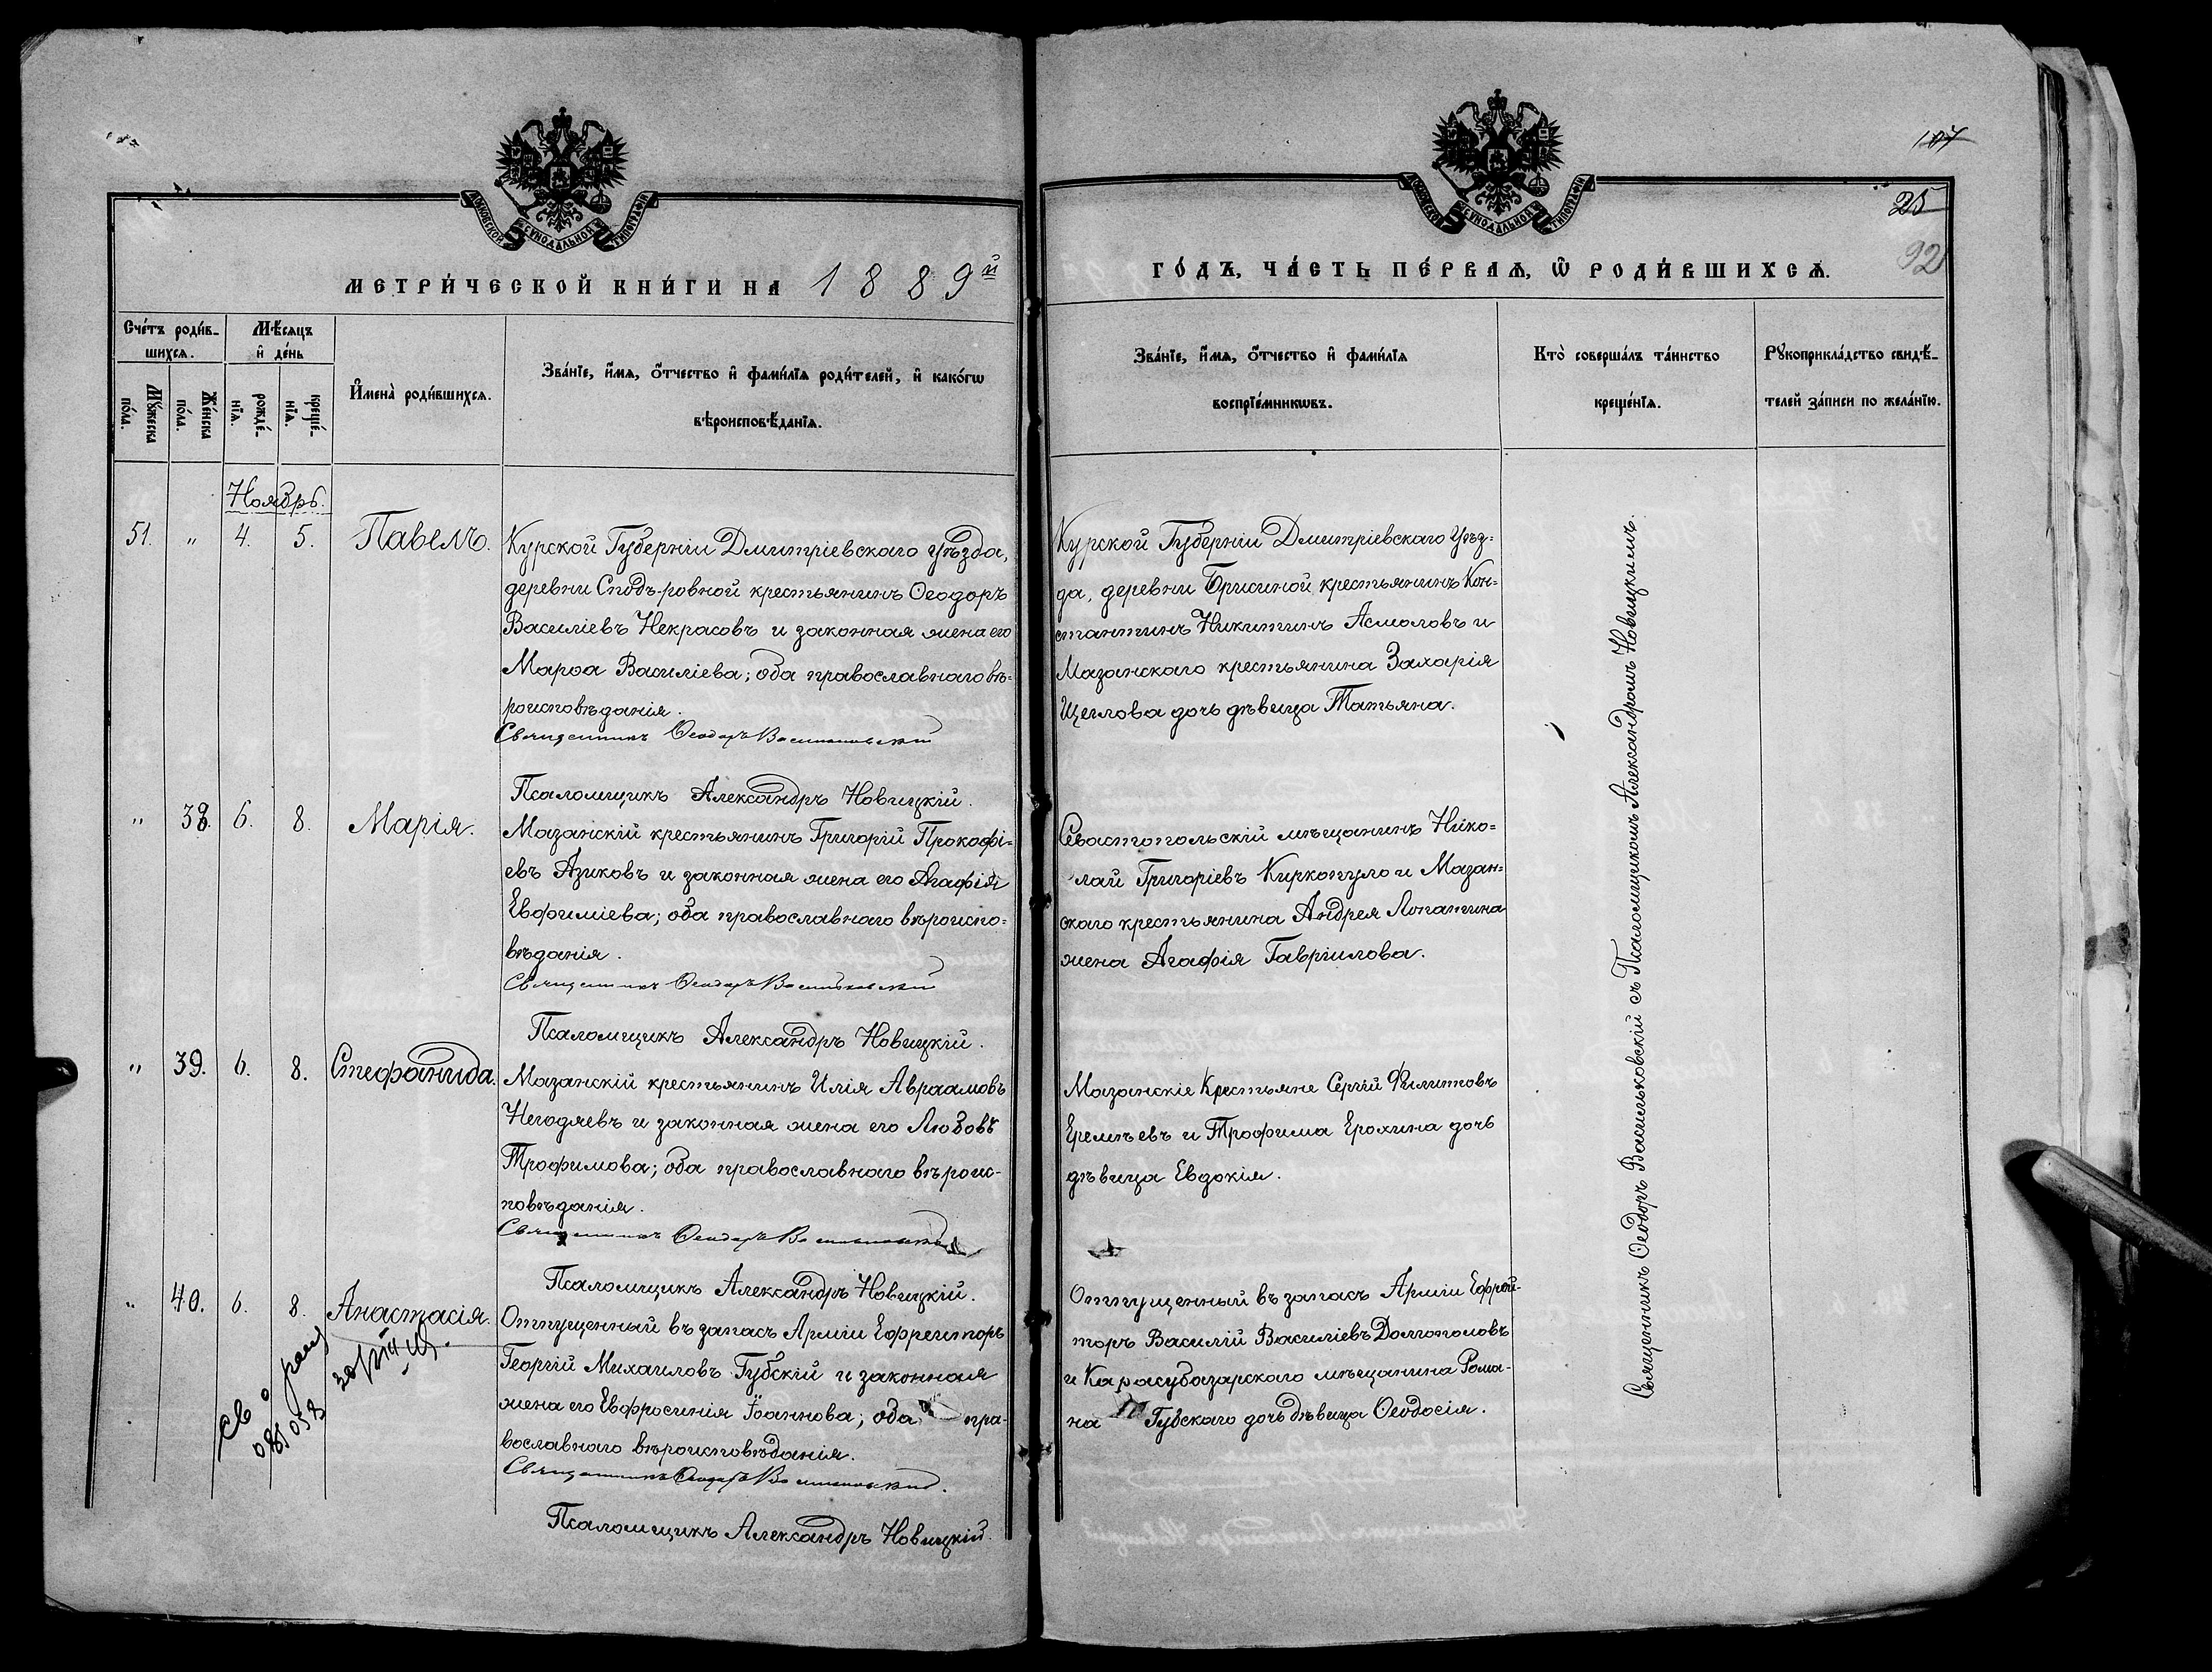 107
25
92
МОСКОВСКОЙ СѴНОДАЛЬНОЙ ТИПОГРАФІИ
МОСКОВСКОЙ СѴНОДАЛЬНОЙ ТИПОГРАФІИ
МЕТРИ́ЧЕСКОЙ КНИ́ГИ НА 1889й
ГО́ДЪ, ЧА́СТЬ ПЕ́РВАѦ, Ѿ РОДИ́ВШИХСѦ.
Сче́тъ роди́в-
шихсѧ.
Мѣ́сѧцъ
и҆ де́нь
Мꙋ́жеска
по́ла.
Же́нска
по́ла.
рожде́-
нїѧ.
креще́-
нїѧ.
И҆мена̀ роди́вшихсѧ.
Зва́нїе, и҆́мѧ, ѻ҆́тчество и҆ фами́лїѧ роди́телей, и҆ како́гѡ
вѣроисповѣ́данїѧ.
Зва́нїе, и҆́мѧ, ѻ҆́тчество и҆ фами́лїѧ
воспрїе́мникѡвъ.
Кто̀ соверша́лъ та́инство
креще́нїѧ.
Рꙋкоприкла́дство свидѣ́-
телей за́писи по жела́нїю.
Ноябрь.
51. " 4. 5. Павелъ.
Курской Губерніи Дмитріевскаго уѣзда,
деревни Сподъ-ровной крестьянинъ Ѳеодоръ
Василіевъ Некрасовъ и законная жена его
Марѳа Василіева; оба православнаго вѣ-
роисповѣданія.
Священникъ Ѳеодоръ Васильковскій
Псаломщикъ Александръ Новицкій.
Курской Губерніи Дмитріевскаго Уѣз-
да, деревни Брисиной крестьянинъ Кон-
стантинъ Никитинъ Асмоловъ и
Мазанскаго крестьянина Захарія
Щеглова дочь дѣвица Татьяна.
" 38. 6. 8. Марія.
Мазанскій крестьянинъ Григорій Прокофі-
евъ Азиковъ и законная жена его Агафія
Евфиміева; оба православнаго вѣроиспо-
вѣданія.
Священникъ Ѳеодоръ Васильковскій
Псаломщикъ Александръ Новицкій.
Севастопольскій мѣщанинъ Нико-
лай Григоріевъ Киркопуло и Мазан-
скаго крестьянина Андрея Лопатина
жена Агафія Гавріилова.
" 39. 6. 8. Стефанида.
Мазанскій крестьянинъ Илія Авраамовъ
Негодяевъ и законная жена его Любовь
Трофимова; оба православнаго вѣроис-
повѣданія.
Священникъ Ѳеодоръ Васильковскій
Псаломщикъ Александръ Новицкій.
Мазанскіе Крестьяне Сергій Филиповъ
Еремѣевъ и Трофима Ерохина дочь
дѣвица Евдокія.
" 40. 6. 8. Анастасія.
Отпущенный въ запасъ Арміи Ефрейторъ
Георгій Михаиловъ Губскій и законная
жена его Евфросинія Іоаннова; оба пра-
вославнаго вѣроисповѣданія.
Священникъ Ѳеодоръ Васильковскій.
Псаломщикъ Александръ Новицкій.
Отпущенный въ запасъ Арміи Ефрей-
торъ Василій Василіевъ Долгополовъ
и Карасубазарскаго мѣщанина Рома-
на Губскаго дочь дѣвица Ѳеодосія.
Священникъ Ѳеодоръ Васильковскій съ Псаломщикомъ Александромъ Новицкимъ.